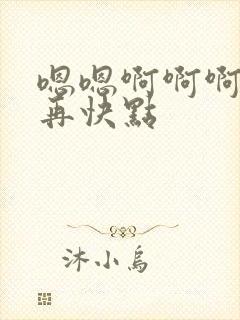 嗯嗯啊啊啊
再快點
沐小烏